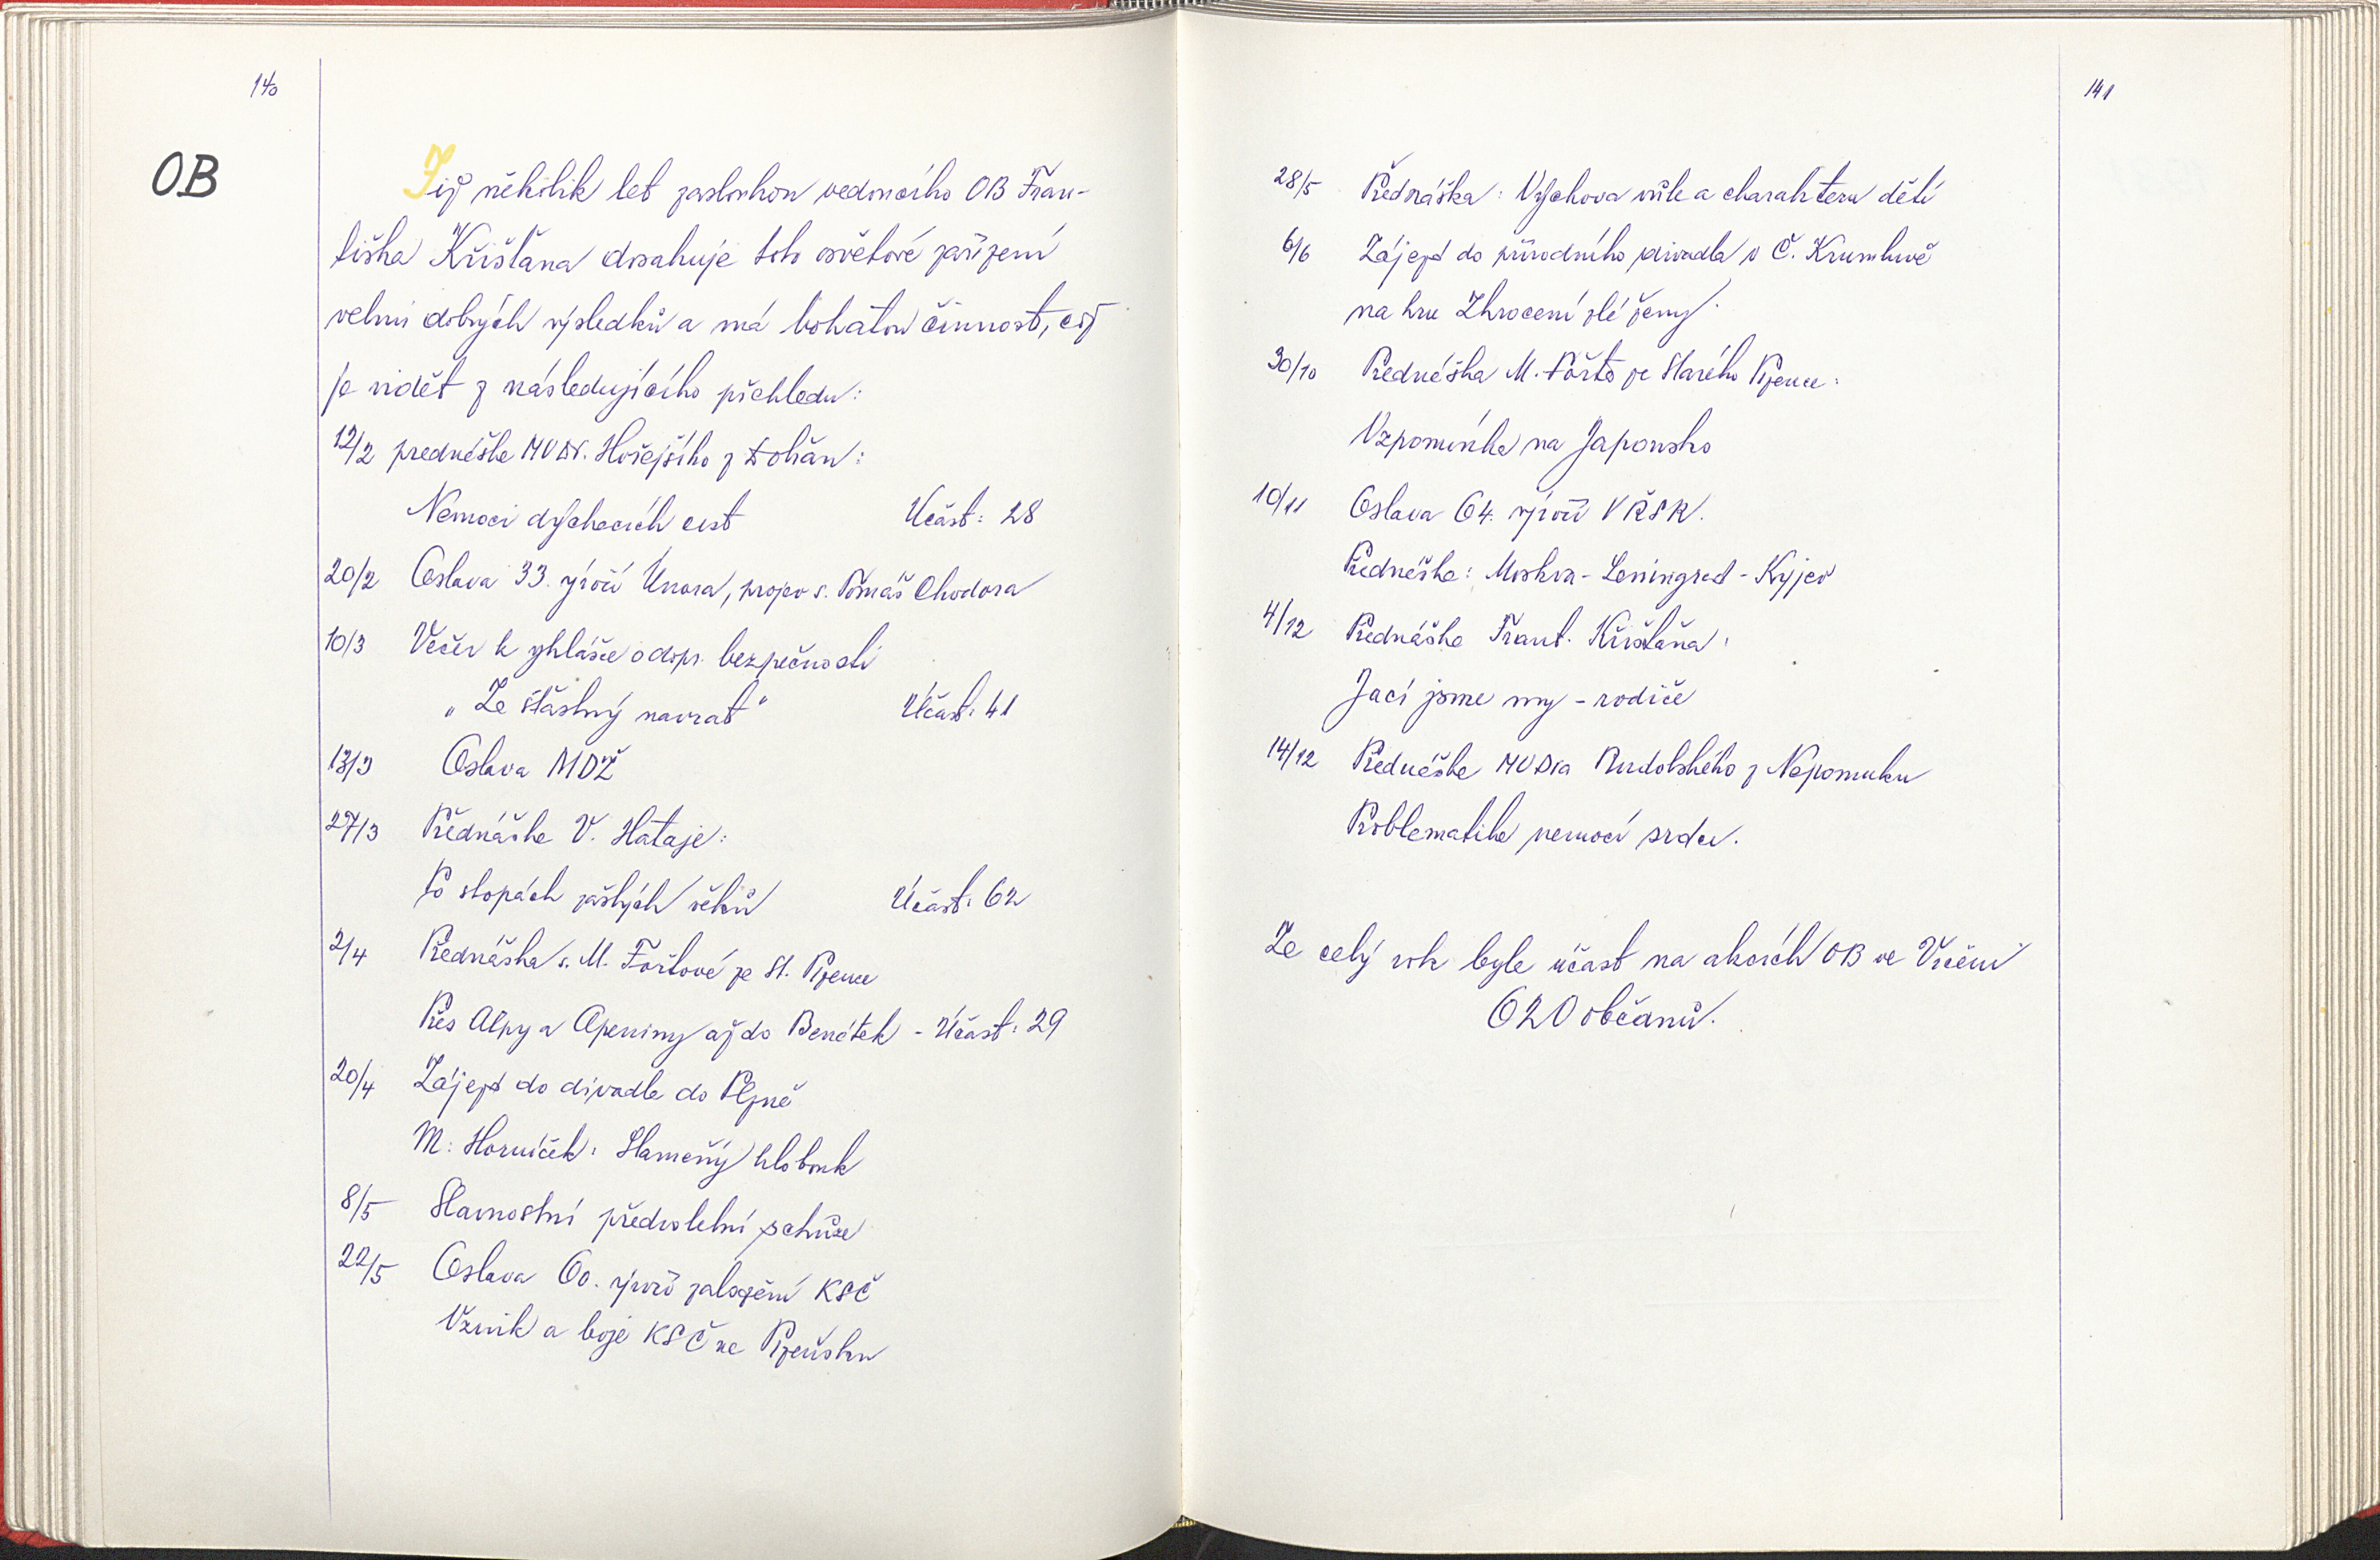 140
OB
Již několik let zásluhou vedoucího OB Fran-
tiška Křišťana dosahuje toto osvětové zařízení
velmi dobrých výsledků a má bohatou činnost, což
je vidět z následujícího přehledu:
12/2 přednáška MUDr. Hořejšího z Dobřan:
Nemoci dýchacích cest Účast: 28
20/2 Oslava 33. výročí Února, projev s. Tomáš Chodora
10/3 Večer k vyhlášce o dopr. bezpečnosti
"Za šťastný návrat" Účast: 41
13/3 Oslava MDŽ
27/3 Přednáška V. Hataje:
Po stopách zašlých věků Účast: 62
2/4 Přednáška s. M. Fořtové ze St. Plzence
Přes Alpy a Apeniny až do Benátek - Účast: 29
20/4 Zájezd do divadla do Plzně
M: Horníček: Slaměný klobouk
8/5 Slavnostní předvolební schůze
22/5 Oslava 60. výročí založení KSČ
Vznik a boje KSČ na Plzeňsku
141
28/5 Přednáška: Výchova vůle a charakteru dětí
6/6 Zájezd do přírodního divadla v Č. Krumlově
na hru Zkrocení zlé ženy
30/10 Přednáška M. Fořta ze Starého Plzence:
Vzpomínka na Japonsko
10/11 Oslava 64. výročí VŘSR.
Přednáška: Moskva - Leningrad - Kyjev
4/12 Přednáška Frant. Křišťana:
Jací jsme my - rodiče
14/12 Přednáška MUDra Rudolského z Nepomuku
Problematika nemocí srdce.
Za celý rok byla účast na akcích OB ve Vrčeni
620 občanů.